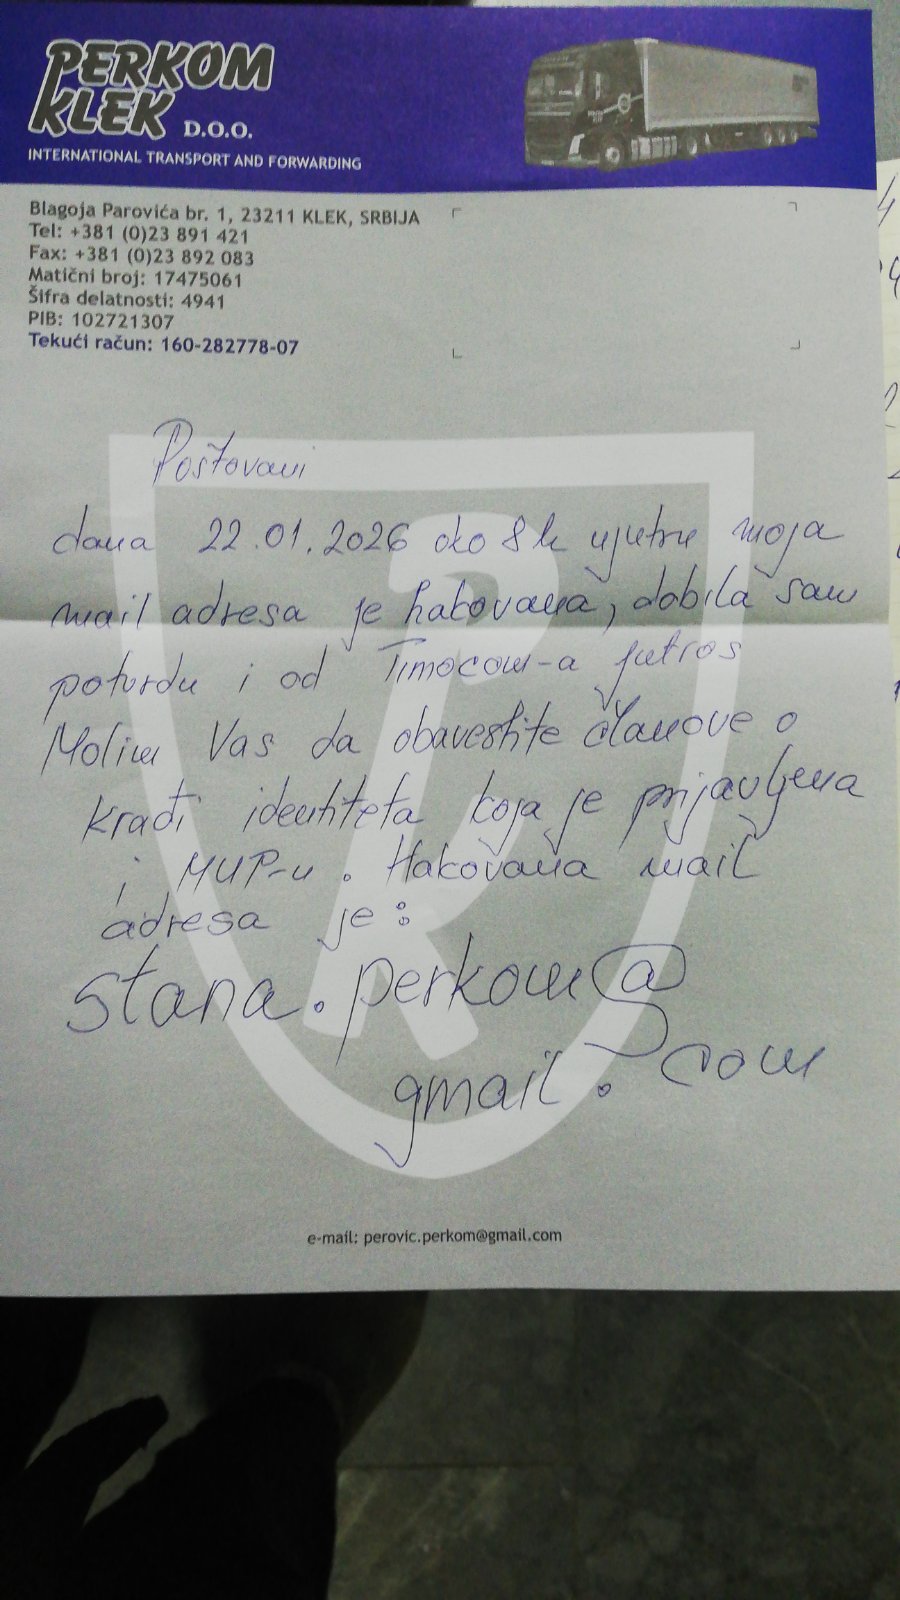 PERKOM
KLEK D.O.O.
INTERNATIONAL TRANSPORT AND FORWARDING
Blagoja Parovića br. 1, 23211 KLEK, SRBIJA
Tel: +381 (0)23 891 421
Fax: +381 (0)23 892 083
Matični broj: 17475061
Šifra delatnosti: 4941
PIB: 102721307
Tekući račun: 160-282778-07
Poštovani
dana 22.01.2026 oko 8h ujutru moja
mail adresa je hakovana, dobila sam
potvrdu i od Timocom-a jutros
Molim Vas da obavestite članove o
krađi identiteta koja je prijavljena
i MUP-u. Hakovana mail
adresa je:
stana.perkom@
gmail.com
e-mail: perovic.perkom@gmail.com